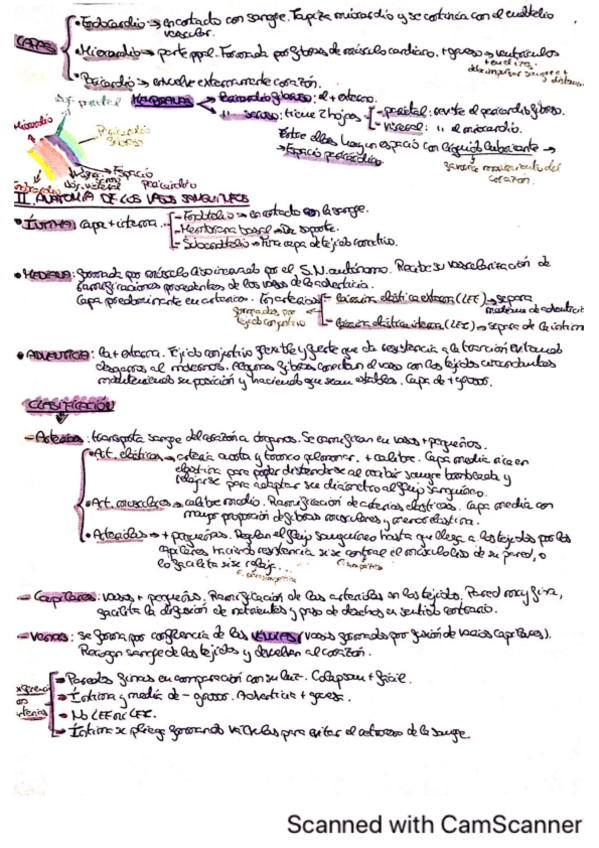 • Endocardio → en contacto con sangre. Tapiza miocardio y se continúa con el endotelio
vascular.
CAPAS
• Miocardio → parte ppal. Formada por fibras de músculo cardiaco. + grueso → ventrículos
• Pericardio → envuelve externamente corazón.
MEMBRANAS → Pericardio fibroso: el + externo.
" seroso: tiene 2 hojas
- parietal: reviste el pericardio fibroso.
- visceral: " al miocardio.
Entre ellas hay un espacio con líquido lubricante →
→ Espacio pericárdico
garantiza movimiento del
corazón.
Miocardio
Pericardio
fibroso
Espacio
pericárdico
II. ANATOMÍA DE LOS VASOS SANGUÍNEOS
• ÍNTIMA: capa + interna.
- Endotelio → en contacto con la sangre.
- Membrana basal → De soporte.
- Subendotelio → Fina capa de tejido conectivo.
• MEDIA: formada por músculo liso inervado por el S.N. autónomo. Recibe su vascularización de
ramificaciones procedentes de los vasos de la adventicia.
Capa predominante en arterias. En arterias
formadas por
tejido conjuntivo
- Lámina elástica externa (LEE) → separa
media de adventicia
- Lámina elástica interna (LEI) → separa de la íntima
• ADVENTICIA: la + externa. Tejido conjuntivo flexible y fuerte que da resistencia a la tracción evitando
desgarros al movernos. Algunas fibras conectan el vaso con los tejidos circundantes
manteniendo su posición y haciendo que sean estables. Capa de + grosor.
CLASIFICACIÓN
- Arterias: transporta sangre del corazón a órganos. Se ramifican en vasos + pequeños.
• Art. elásticas → arteria aorta y tronco pulmonar. + calibre. Capa media rica en
elastina para poder distenderse al recibir sangre bombeada y
relajarse para adaptar su diámetro al flujo sanguíneo.
• Art. musculares → calibre medio. Ramificación de arterias elásticas. Capa media con
mayor proporción de fibras musculares y menor elastina.
• Arteriolas → + pequeñas. Regulan el flujo sanguíneo hasta que llega a los tejidos por los
capilares haciendo resistencia si se contrae el músculo liso de su pared, o
lo facilita si se relaja.
- Capilares: vasos + pequeños. Ramificación de las arteriolas en los tejidos. Pared muy fina,
facilita la difusión de nutrientes y paso de desechos en sentido contrario.
- Venas: se forma por confluencia de las VÉNULAS (vasos formados por fusión de varios capilares).
Recogen sangre de los tejidos y devuelven al corazón.
• Paredes finas en comparación con su luz. Colapsan + fácil.
• Íntima y media de - grosor. Adventicia + gruesa.
• No LEE ni LEI.
• Íntima se pliega formando válvulas para evitar el retroceso de la sangre.
Scanned with CamScanner